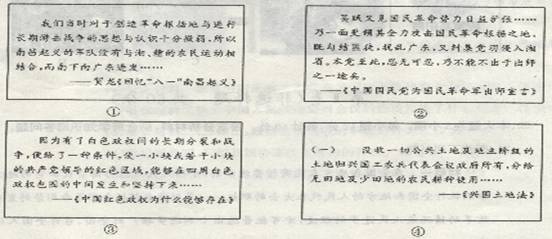 我们当时对于创造革命根据地与进行
长期游击战争的思想与认识十分薄弱,所以
南昌起义的军队没有与湘、赣的农民运动相
结合,而南下向广东进发……
——贺龙《回忆“八一”南昌起义》
①
吴贼又见国民革命势力日益扩张……
乃一面更倾其全力攻击国民革命根据之地、
既勾结匪徒,扰乱广东,又纠集党羽侵入湘
省。本党至此,忍无可忍,乃不能不出于出师
之一途矣。
——《中国国民党为国民革命军出师宣言》
②
因为有了白色政权间的长期分裂和战
争,便给了一种条件,使一小块或若干小块
的共产党领导的红色区域,能够在四周白色
政权包围的中间发生和坚持下来……
——《中国红色政权为什么能够存在》
③
(一) 没收一切公共土地及地主阶级的
土地归兴国工农兵代表会议政府所有,分给
无田地及少田地的农民耕种使用……
——《兴国土地法》
④